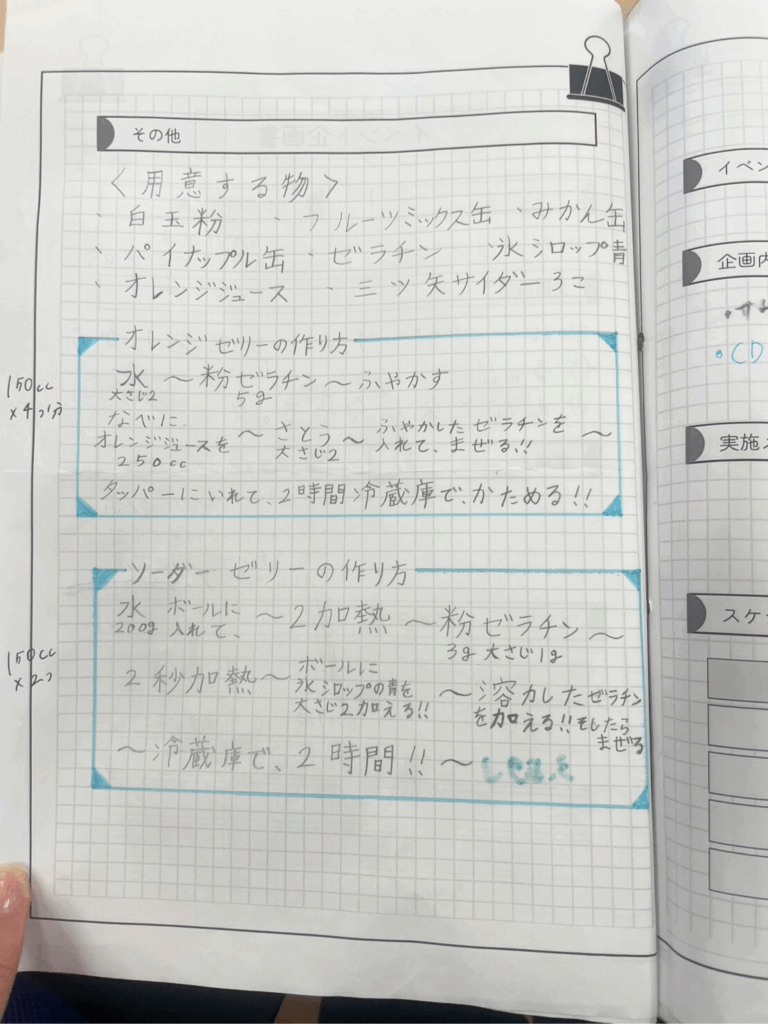 その他
〈用意する物〉
・白玉粉 ・フルーツミックス缶 ・みかん缶
・パイナップル缶 ・ゼラチン 氷シロップ青
・オレンジジュース ・三ツ矢サイダー3こ
オレンジゼリーの作り方
水 〜 粉ゼラチン 〜 ふやかす
大さじ2 5g
150cc
×4つ分
なべに、
オレンジジュースを
250cc
〜 さとう 〜
大さじ2
ふやかしたゼラチンを
入れて、まぜる!! 〜
タッパーにいれて、2時間冷蔵庫で、かためる!!
ソーダーゼリーの作り方
水 ボールに
200g 入れて、
〜 2加熱 〜 粉ゼラチン 〜
3g 大さじ1g
150cc
×2つ
2秒加熱 〜
ボールに
氷シロップの青を
大さじ2加える!!
〜 溶かしたゼラチン
を加える!! そしたら
まぜる
〜 冷蔵庫で、2時間!! 〜
イベン
企画内
・CD
実施
スケ